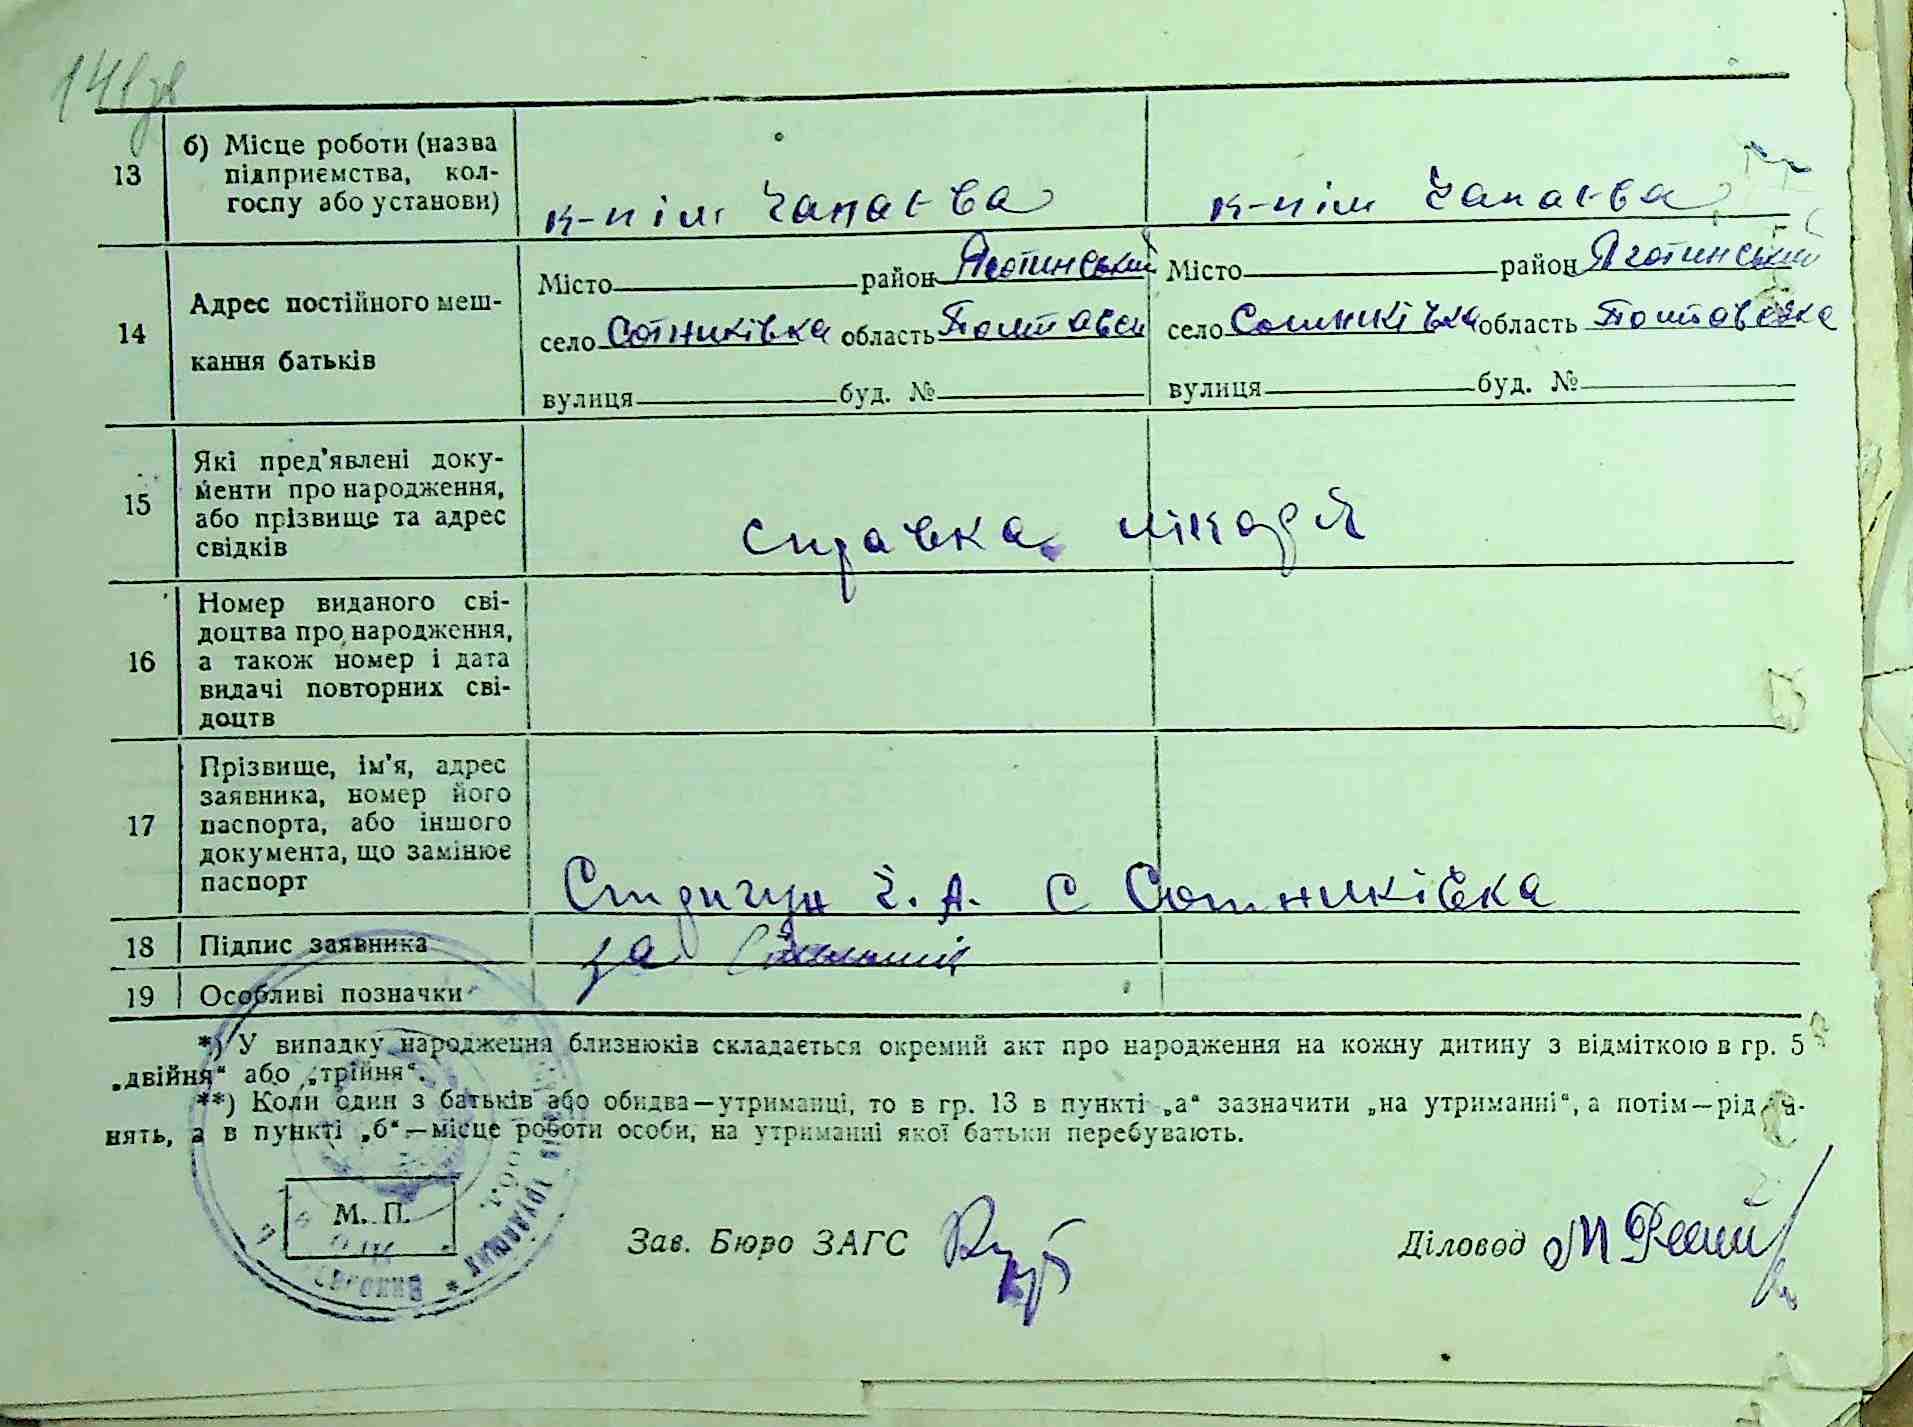 14 зв
13 б) Місце роботи (назва
підприємства, кол-
госпу або установи)
к-п ім Чапаєва к-п ім Чапаєва
14 Адрес постійного меш-
кання батьків
Місто район Яготинський Місто район Яготинський
село Сотниківка область Полтавськ село Сотниківка область Полтавська
вулиця буд. № вулиця буд. №
15 Які пред'явлені доку-
менти про народження,
або прізвище та адрес
свідків
справка
16 Номер виданого сві-
доцтва про народження,
а також номер і дата
видачі повторних сві-
доцтв
17 Прізвище, ім'я, адрес
заявника, номер його
паспорта, або іншого
документа, що замінює
паспорт
А. С Сотниківка
18 Підпис заявника
за
19 Особливі позначки
*) У випадку народження близнюків складається окремий акт про народження на кожну дитину з відміткою в гр. 5
„двійня“ або „трійня“.
**) Коли один з батьків або обидва—утриманці, то в гр. 13 в пункті „а“ зазначити „на утриманні“, а потім—рід за-
нять, а в пункті „б“—місце роботи особи, на утриманні якої батьки перебувають.
М. П.
Зав. Бюро ЗАГС
Діловод